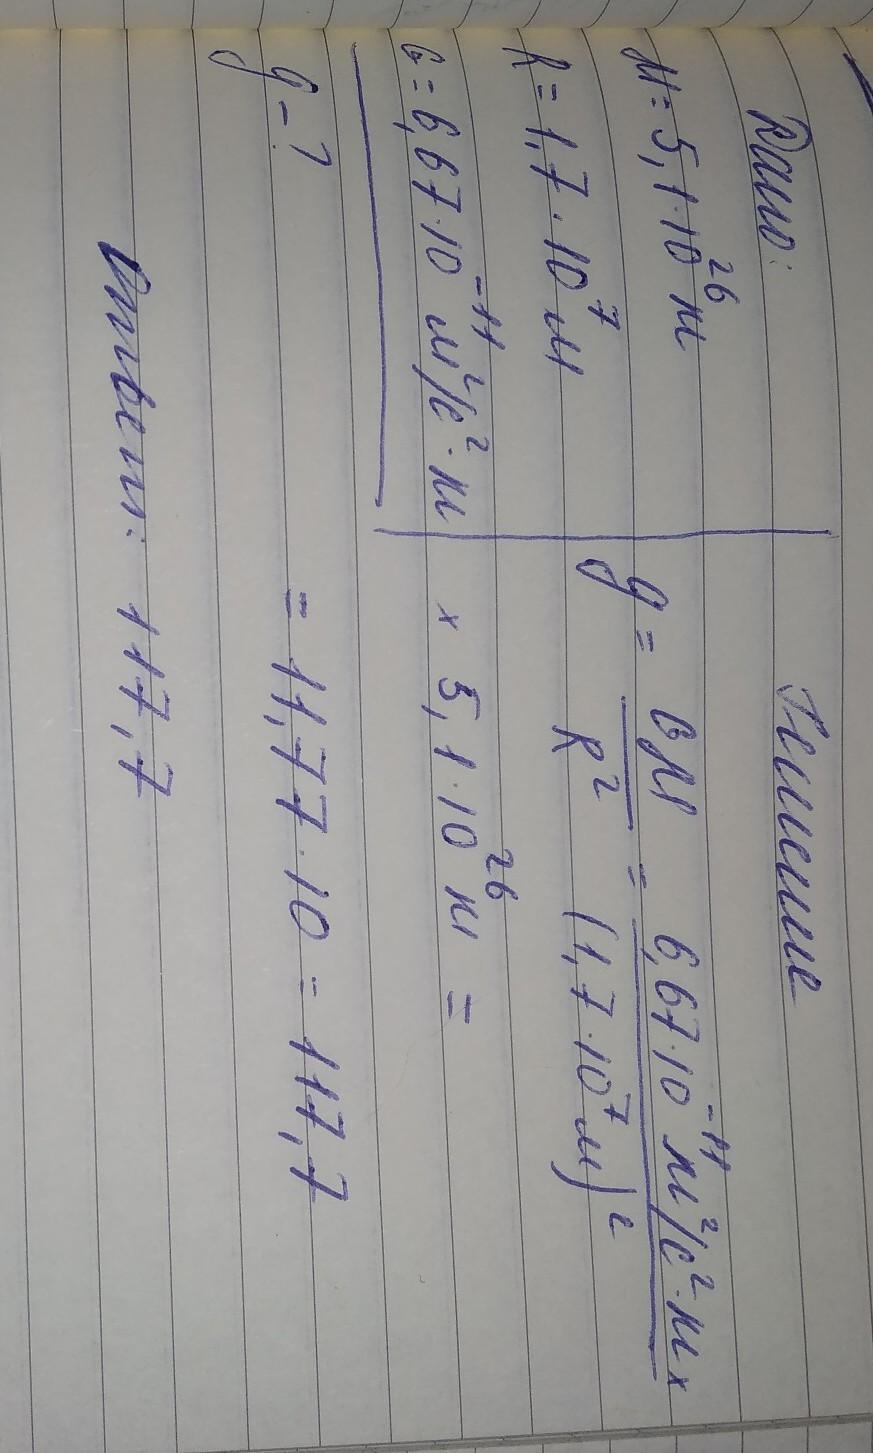 Дано:
M = 5,1·10²⁶ кг
R = 1,7·10⁷ м
G = 6,67·10⁻¹¹ м²/с²·кг
g - ?
Решение
g = GM/R² = 6,67·10⁻¹¹ м²/с²·кг x / (1,7·10⁷ м)²
x 5,1·10²⁶ кг =
= 11,77·10 = 117,7
Ответ: 117,7